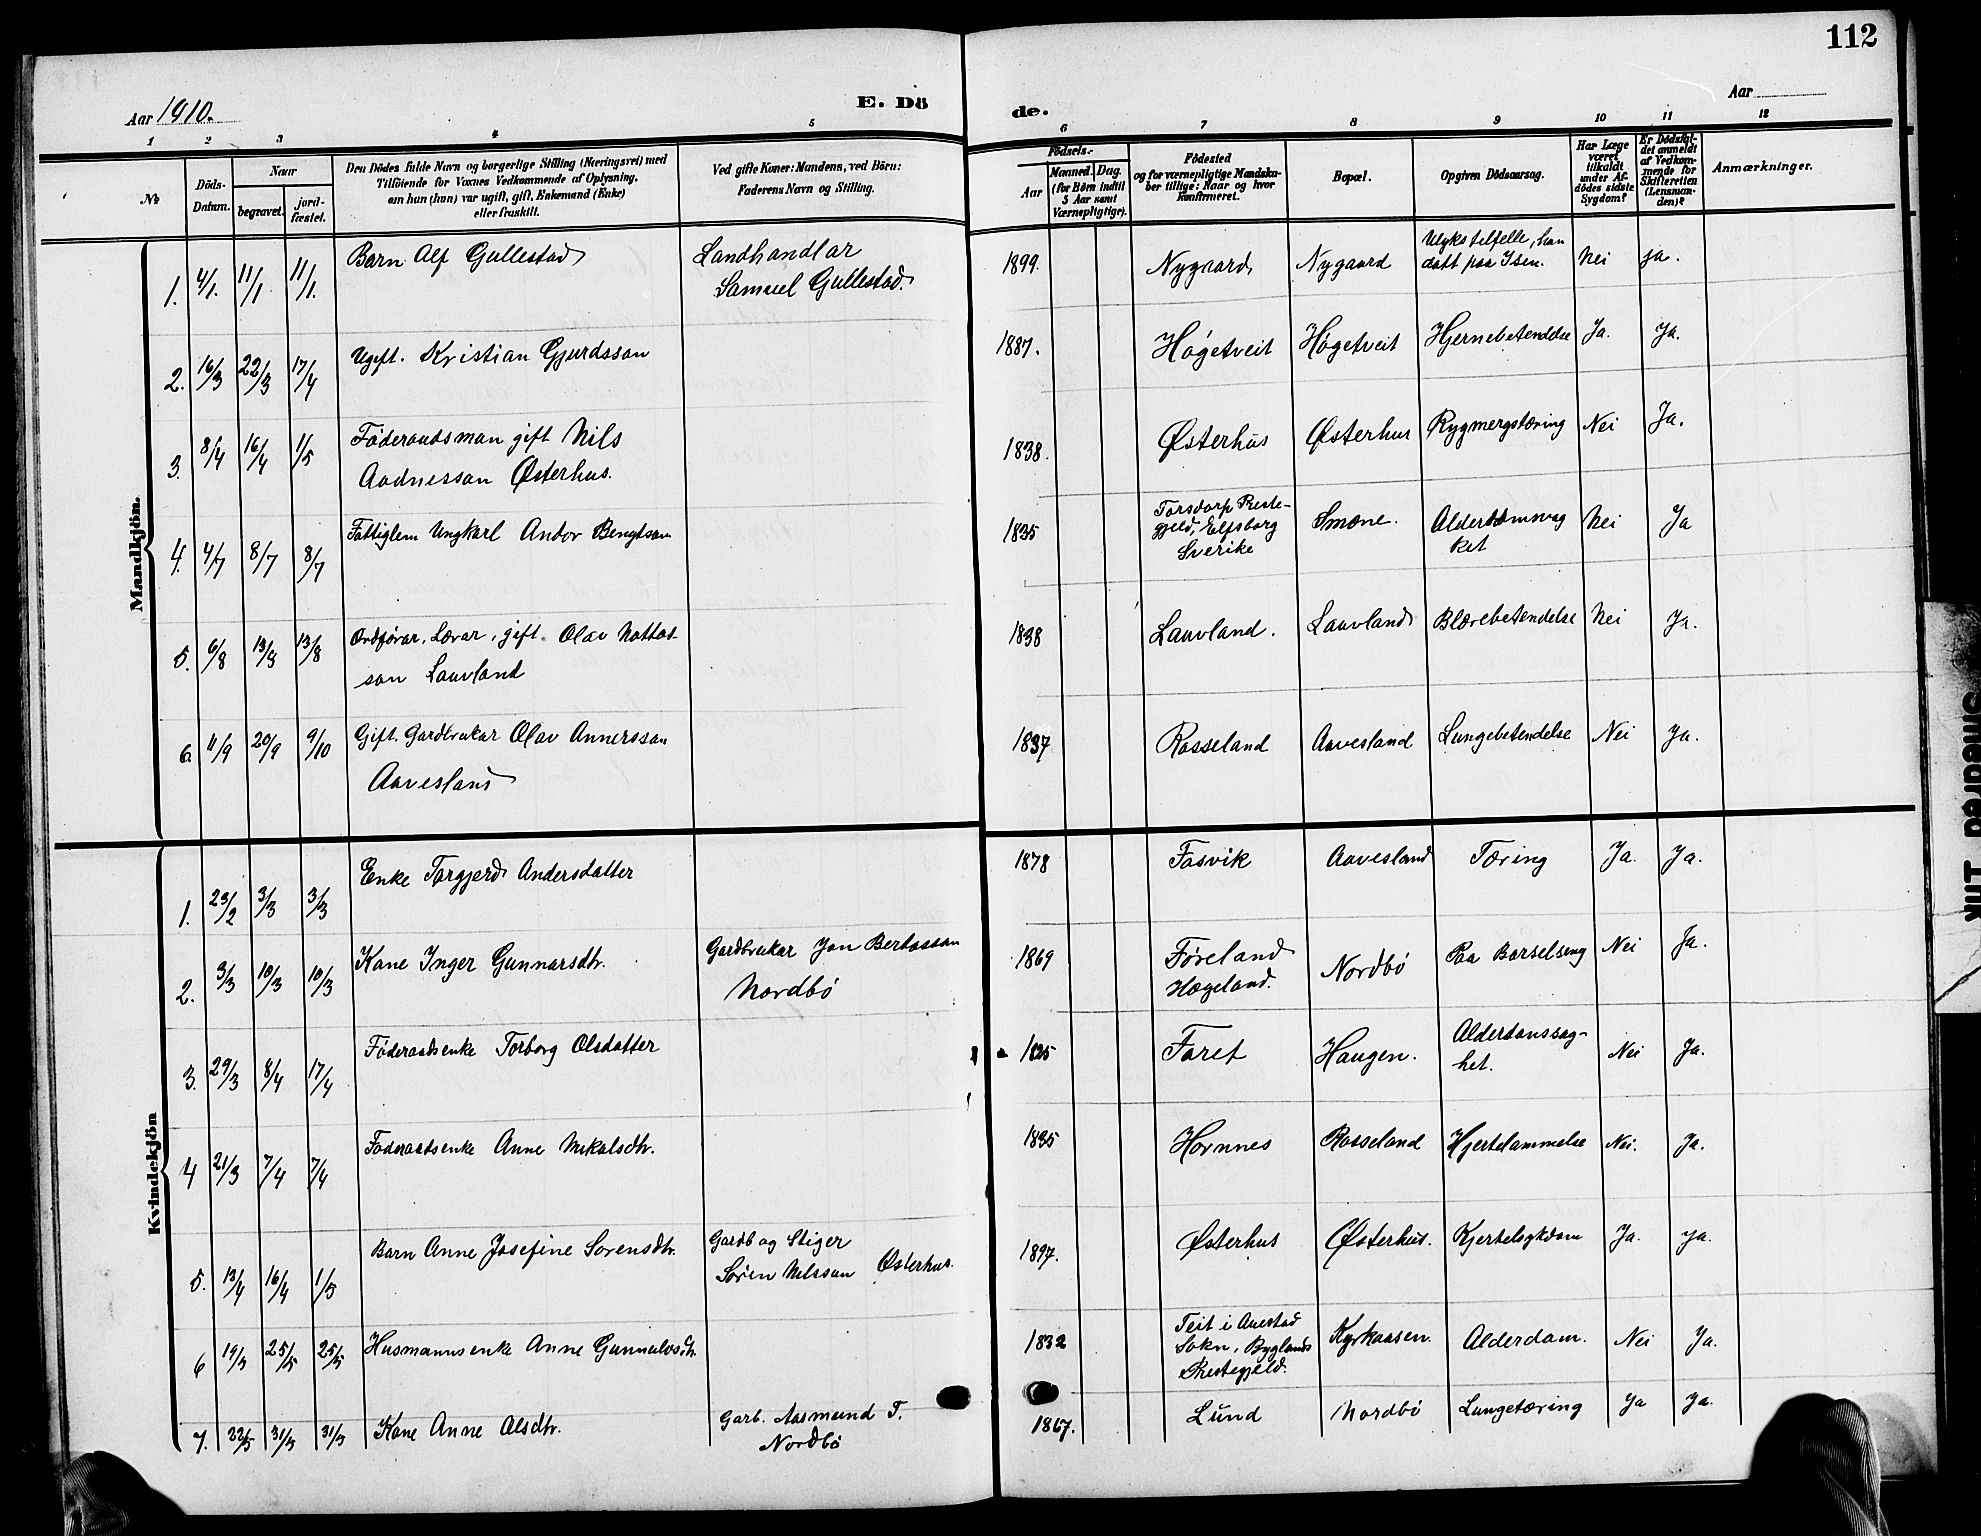 112
Aar 1910.
E. Dö
de.
Aar
1 2 3 4 5 6 7 8 9 10 11 12
No
Döds-
Datum.
Naar
begravet.
jord-
fæstet.
Den Dödes fulde Navn og borgerlige Stilling (Næringsvei) med
Tilföiende for Voxnes Vedkommende af Oplysning,
om han (hun) var ugift, gift, Enkemand (Enke)
eller fraskilt.
Ved gifte Koner: Mandens, ved Börn:
Faderens Navn og Stilling.
Födsels-
Aar
Maaned. Dag.
(for Börn indtil
5 Aar samt
Værnepligtige).
Födested
og for værnepligtige Mandska-
ber tillige: Naar og hvor
konfirmeret.
Bopæl.
Opgiven Dödsaarsag.
Har Læge
været
tilkaldt
under Af-
dödes sidste
Sygdom?
Er Dödsfal-
det anmeldt
af Vedkom-
mende for
Skifteretten
(Lensman-
den)?
Anmærkninger.
Mandkjön.
1. 4/1. 11/1. 11/1. Barn Alf Gullestad Landhandlar
Samuel Gullestad. 1899. Nygaard Nygaard Ulykstilfelle, han
datt paa Isen. Nei ja.
2. 16/3 22/3 17/4 Ugift. Kristian Gjurdsson 1887. Høgetveit Høgetveit Hjernebetendelse Ja. Ja.
3. 8/4 16/4 1/5 Føderaadsman gift Nils
Aadnesson Østerhus. 1838. Østerhus Østerhus Rygmergstæring Nei Ja.
4. 4/7 8/7 8/7 Fattiglem Ungkarl Andor Bengtson 1835 Torsdorp Preste-
gjeld, Elfsborg
Sverike Smæne. Nei Ja
5. 6/8 13/8 13/8 Ordførar, Lærar, gift. Olav
son Lauvland 1838 Lauvland. Lauvland Blærebetendelse Nei Ja.
6. 11/9 20/9 9/10 Gift. Gardbrukar Olav Annersson
Aavesland 1837 Rosseland Aavesland Lungebetendelse Nei Ja.
Kvindekjön
1. 23/2 3/3 3/3 Enke Torgjerd Andersdatter 1878 Fosvik Aavesland Tæring Ja. Ja.
2. 3/3 10/3 10/3 Kone Inger Gunnarsdtr. Gardbrukar Jon
Nordbö 1869 Føreland
Hægeland. Nordbö Paa Barselseng Nei Ja.
3. 29/3 8/4 17/4 Føderaadsenke Torborg Olsdatter 1825 Faret Haugen. Nei Ja.
4 21/3 7/4 7/4 Føderaadsenke Anne Mikalsdtr. 1835 Hornnes Rosseland Hjertelammelse Nei. Ja.
5. 13/4 16/4 1/5 Barn Anne Josefine Sorensdtr. Gardb og Stiger
Søren Nilsson Østerhus. 1897. Østerhus Østerhus. Kjertelsykdom Ja. Ja.
6 25/5 25/5 Husmannsenke Anne Gunnulvsdtr 1832 Teit i
Sokn, Byglands
Prestegjeld. Kyrkaasen. Alderdom. Nei Ja.
7. 22/5 Kone Anne Olsdtr. Garb. Aasmund T.
Nordbö 1867. Lund Nordbö Lungetæring Ja Ja.